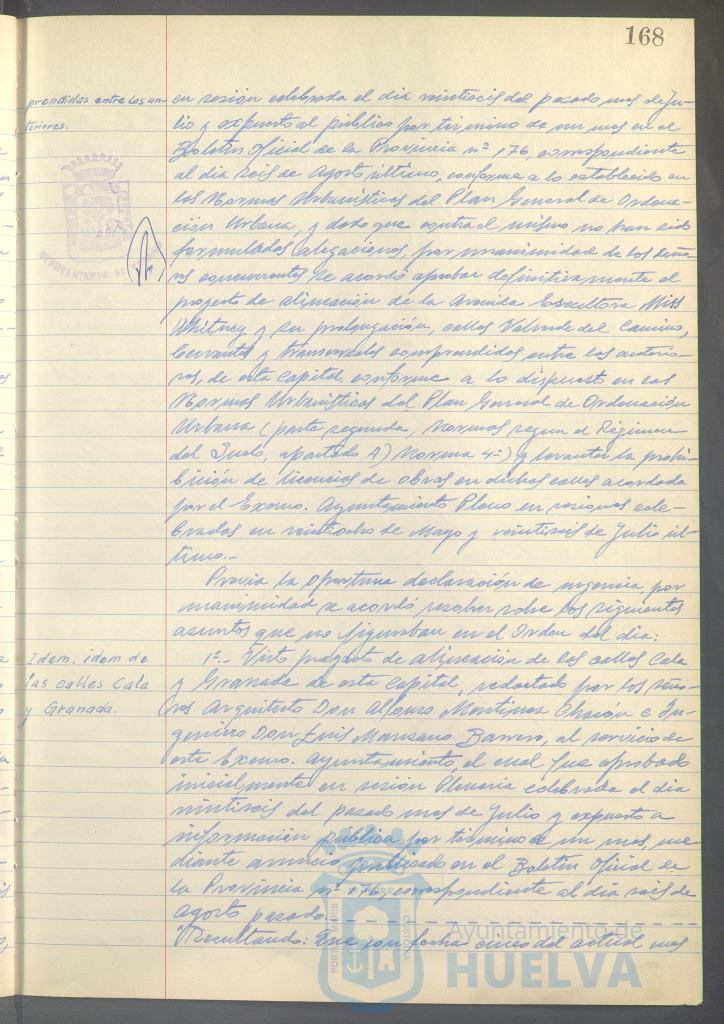 168
prendidas entre las an-
teriores.
en sesión celebrada el día veintiseis del pasado mes de Ju-
lio y expuesto al público por término de un mes en el
Boletín Oficial de la Provincia nº 176, correspondiente
al día seis de Agosto último, conforme a lo establecido en
las Normas Urbanísticas del Plan General de Ordena-
ción Urbana, y dado que contra el mismo no han sido
formuladas alegaciones, por unanimidad de los Seño-
res concurrentes se acordó aprobar definitivamente el
proyecto de alineación de la Avenida Escultora Miss
Whitney y su prolongación, calles Valverde del Camino,
Cervantes y transversales comprendidas entre las anterio-
res, de esta Capital, conforme a lo dispuesto en las
Normas Urbanísticas del Plan General de Ordenación
Urbana (parte segunda, Normas segun el Régimen
del Suelo, apartado A) Norma 4ª) y levantar la prohi-
bición de licencias de obras en dichas calles acordada
por el Excmo. Ayuntamiento Pleno en sesiones cele-
bradas en veintiocho de Mayo y veintiseis de Julio úl-
timo.-
Previa la oportuna declaración de urgencia, por
unanimidad se acordó resolver sobre los siguientes
asuntos que no figuraban en el Orden del día:
Idem. idem de
las calles Cala
y Granada.
1º.- Visto proyecto de alineación de las calles Cala
y Granada de esta Capital, redactado por los seño-
res Arquitecto Don Alfonso Martinez Chacón e In-
geniero Don Luis Manzano Barrero, al servicio de
este Excmo. Ayuntamiento, el cual fue aprobado
inicialmente en sesión Plenaria celebrada el día
veintiseis del pasado mes de Julio y expuesto a
información pública por término de un mes, me-
diante anuncio publicado en el Boletín Oficial de
la Provincia nº 176, correspondiente al día seis de
Agosto pasado.
"Resultando: Que con fecha cinco del actual mes
Ayuntamiento de
HUELVA